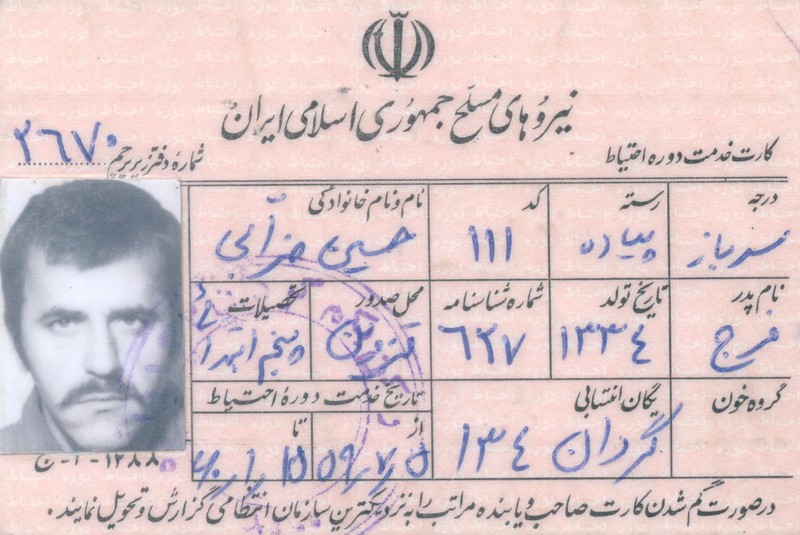 نیروهای مسلح جمهوری اسلامی ایران
کارت خدمت دوره احتیاط
شماره دفتر زیر پرچم ۳۶۷۰
درجه
رسته
کد
نام و نام خانوادگی
سرباز
پیاده
۱۱۱
حسین
نام پدر
تاریخ تولد
شماره شناسنامه
محل صدور
تحصیلات
فرج
۱۳۳۴
۶۲۷
قزوین
پنجم ابتدائی
گروه خون
یگان انتسابی
تاریخ خدمت دوره احتیاط
گردان ۱۳۴
از
تا
۵۹/۷/۵
۱۲۸۸-۱-ج
در صورت گم شدن کارت صاحب و یابنده مراتب را به نزدیکترین سازمان انتظامی گزارش و تحویل نمایند.